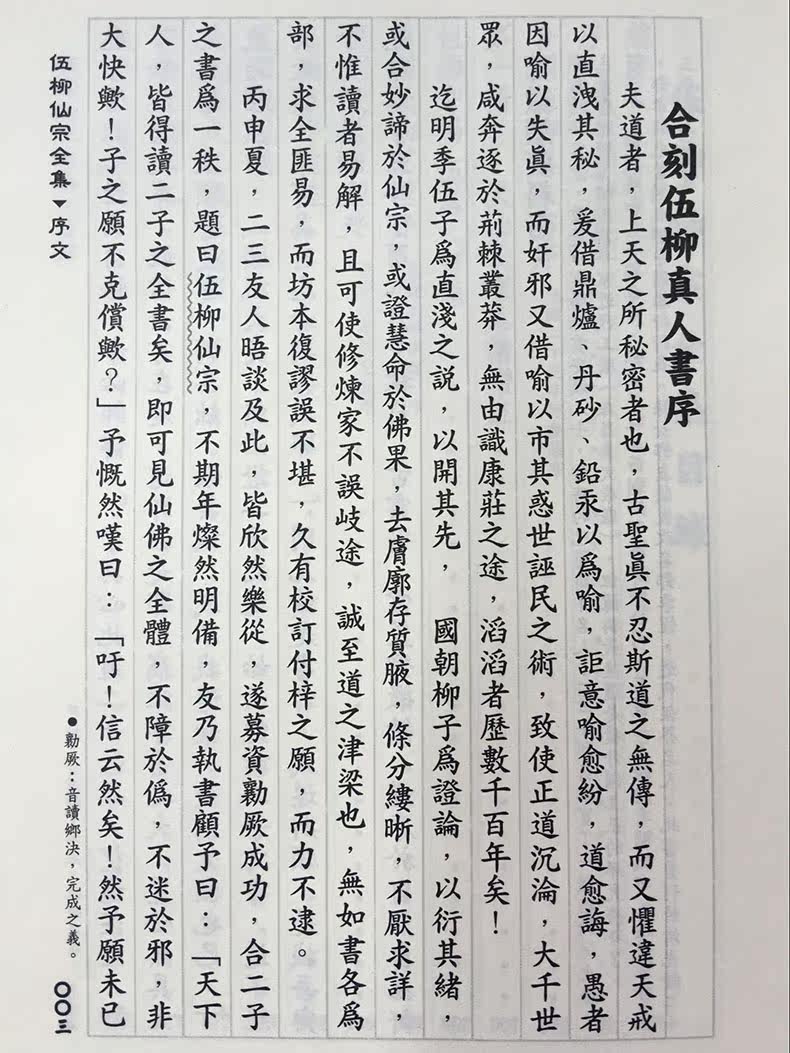 合刻伍柳真人書序
夫道者，上天之所秘密者也，古聖眞不忍斯道之無傳，而又懼違天戒
以直洩其秘，爰借鼎爐、丹砂、鉛汞以爲喻，詎意喻愈紛，道愈誨，愚者
因喻以失眞，而奸邪又借喻以市其惑世誣民之術，致使正道沉淪，大千世
眾，咸奔逐於荊棘叢莽，無由識康莊之途，滔滔者歷數千百年矣！
迄明季伍子爲直淺之説，以開其先，　國朝柳子爲證論，以衍其緒，
或合妙諦於仙宗，或證慧命於佛果，去膚廓存質腋，條分縷晰，不厭求詳，
不惟讀者易解，且可使修煉家不誤岐途，誠至道之津梁也，無如書各爲
部，求全匪易，而坊本復謬誤不堪，久有校訂付梓之願，而力不逮。
丙申夏，二三友人晤談及此，皆欣然樂從，遂募資勷厥成功，合二子
之書爲一秩，題曰伍柳仙宗，不期年燦然明備，友乃執書顧予曰：「天下
人，皆得讀二子之全書矣，即可見仙佛之全體，不障於偽，不迷於邪，非
大快歟！子之願不克償歟？」予慨然嘆曰：「吁！信云然矣！然予願未已
●勷厥：音讀鄉決，完成之義。
伍柳仙宗全集▼序文
〇〇三